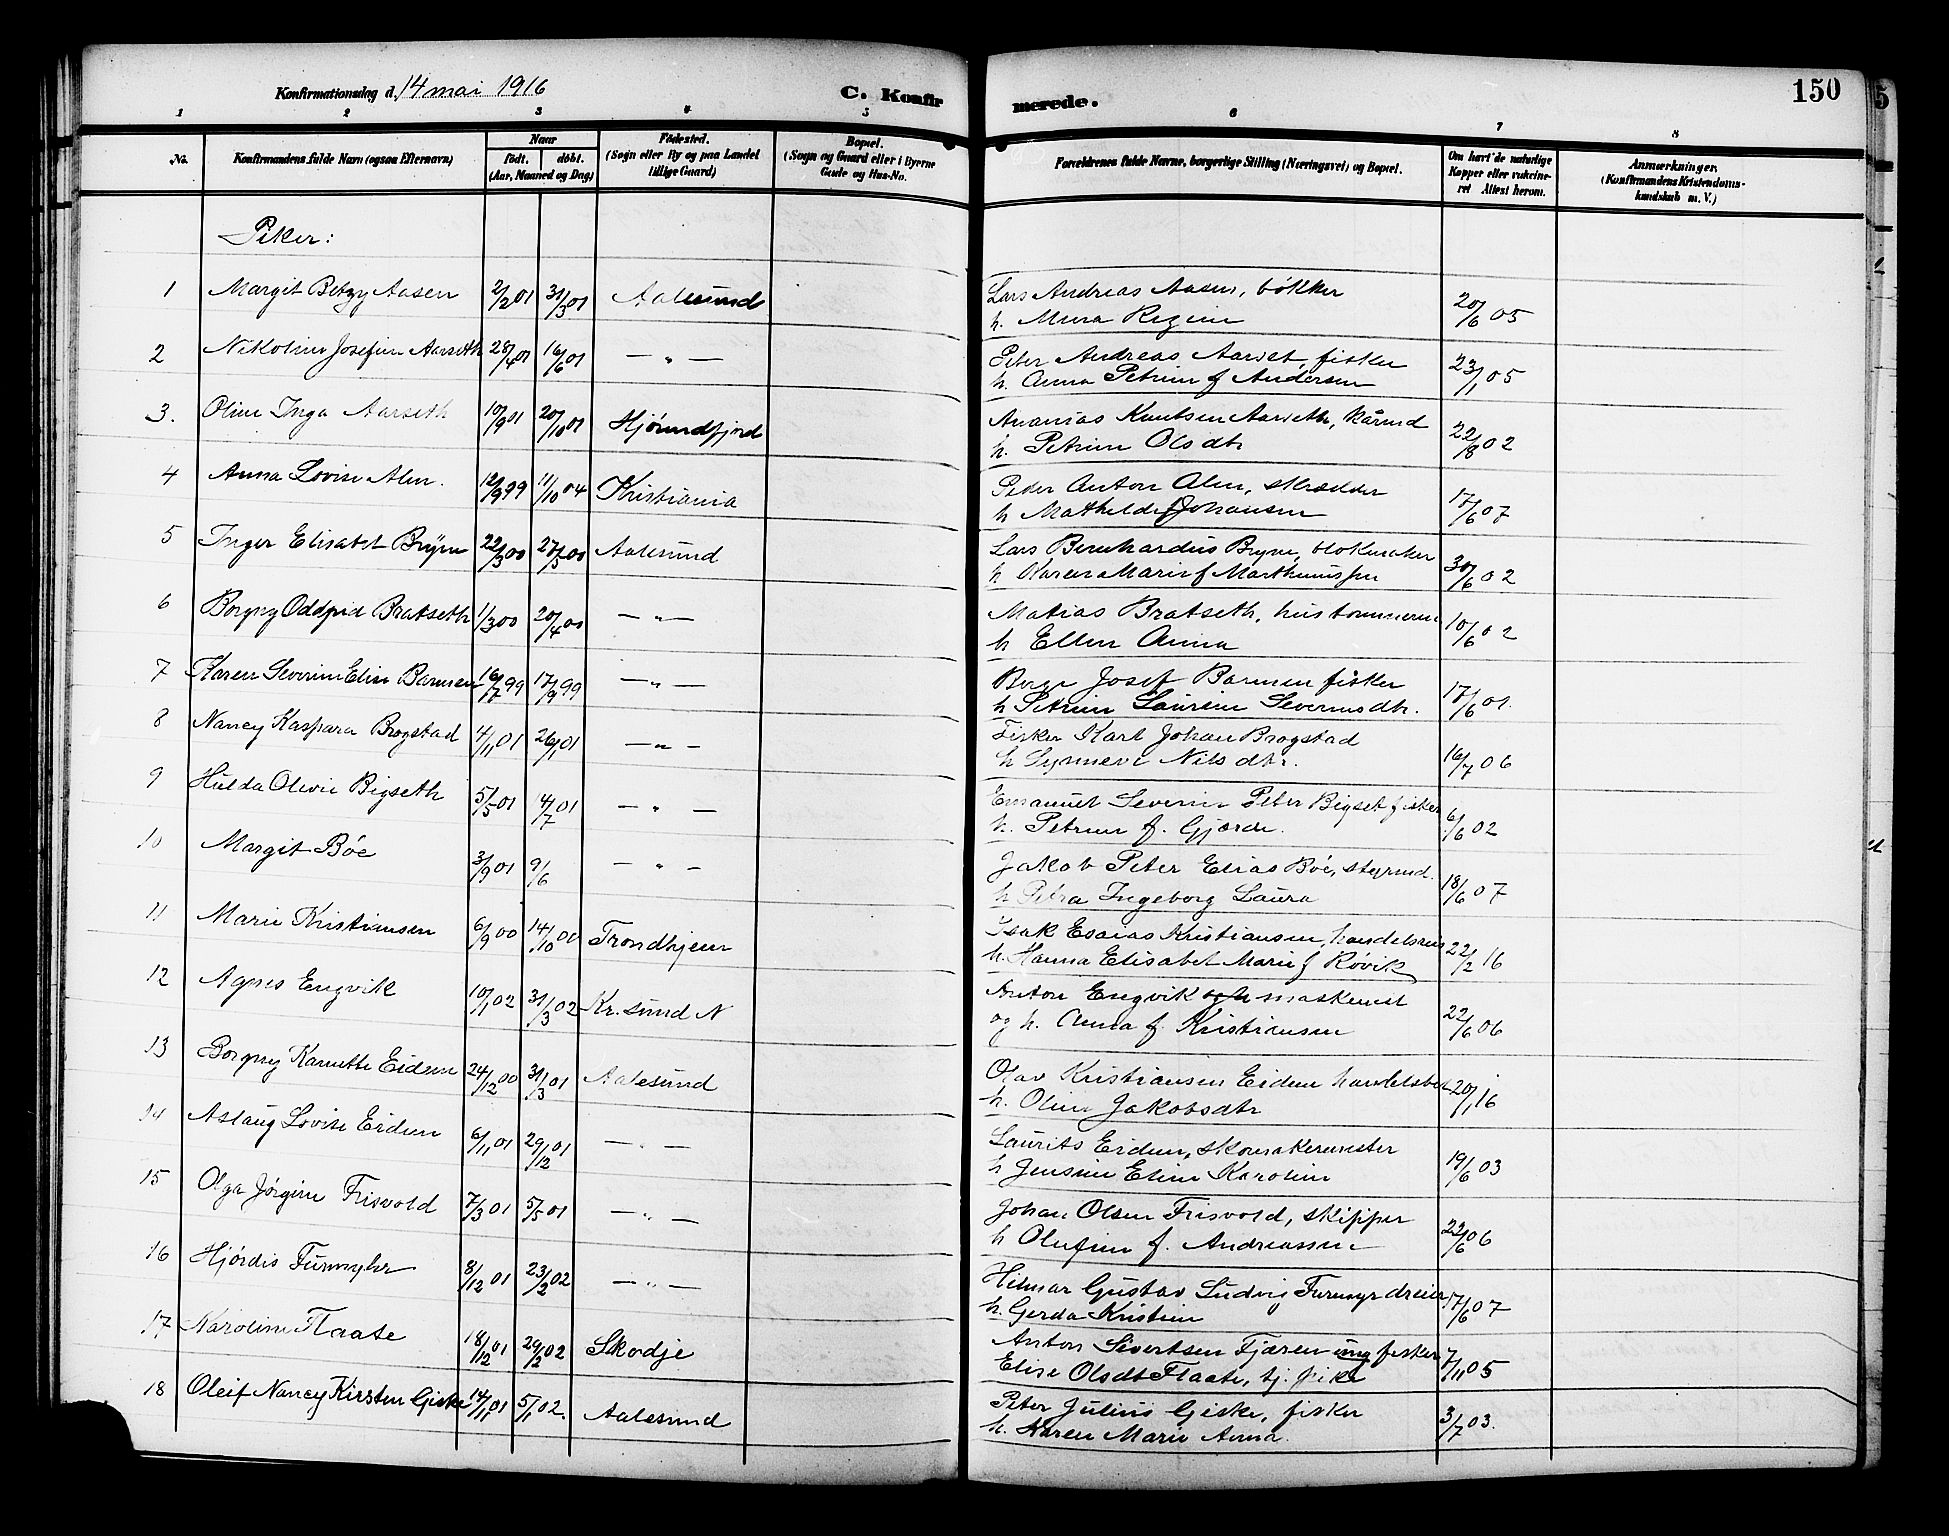 Konfirmationsdag d. 14 mai 1916
C. Konfirmerede.
150
1 2 3 4 5 6 7 8
No. Konfirmandens fulde Navn (ogsaa Efternavn) Naar født. døbt. (Aar, Maaned og Dag) Fødested. (Sogn eller By og paa Landet tillige Gaard) Bopæl. (Sogn og Gaard eller i Byerne Gade og Hus-No. Forældrenes fulde Navne, borgerlige Stilling (Næringsvei) og Bopæl. Om havt de naturlige Kopper eller vakcineret Attest herom. Anmærkninger. (Konfirmandens Kristendomskundskab m. V.)
Piker:
1 Margit Betzy Aasen 2/2 01 31/3 01 Aalesund Lars Andreas Aasen, bøkker 20/6 05
h.
2 Nikoline Josefine Aarseth 28/4 01 16/6 01 — " — Peter Andreas Aarset, fisker 23/1 05
h. Anna Petrine f Andersen
3. Oline Inga Aarseth 10/9 01 20/10 01 Hjørundfjord Ananias Knutsen Aarseth, kårmd 22/8 02
h. Petrine Olsdtr
4 Anna Lovise Alm. 12/9 99 11/10 04 Kristiania Peder Anton Alm, skrædder 17/6 07
h Mathilde f Johansen
5 Inger Elisabet Bryne 22/3 00 27/5 00 Aalesund Lars Bernhardus Bryne, blokmaker 30/6 02
h Karen Marie f
6 Borgny Oddgrid Bratseth 1/3 00 20/4 00 — " — Matias Bratseth, hustømmerm 10/6 02
h Ellen Anna
7 Karen Severine Elise Barmen 16/7 99 17/9 99 — " — Josef Barmen fisker 17/6 01.
h Petrine Laurine Severinsdtr.
8 Nancy Kaspara Brogstad 4/11 01 26/1 01 — " — Fisker Karl Johan Brogstad 16/7 06
h Synneve Nilsdtr.
9 Hulda Olivie Bigseth 5/5 01 14/7 01 — " — Emanuel Severin Peter Bigset fisker 6/6 02
h. Petrine f. Gjørde.
10 Margit Böe 3/9 01 9/6 — " — Jakob Peter Elias Böe, styrmd. 18/6 07
h Petra Ingeborg Laura
11 Marie Kristiansen 6/9 00 14/10 00 Trondhjem Isak Esaias Kristiansen, handelsreis 22/2 16
h. Hanna Elisabet Marie f Røvik
12 Agnes Engvik 10/1 02 31/3 02 Kr. sund N Anton Engvik maskinist 22/6 06
og h. Anna f. Kristiansen
13 Borgny Karnette Eidem 24/12 00 31/3 01 Aalesund Olav Kristiansen Eidem handelsbet. 20/1 16
h. Oline Jakobsdtr
14 Aslaug Lovise Eidem 6/11 01 29/12 01 — " — Laurits Eidem, skomakermester 19/6 03
h Jensine Eline Karoline
15 Olga Jørgine Frisvold 7/3 01 5/5 01 — " — Johan Olsen Frisvold, skipper 22/6 06
h Olufine f. Andreassen
16 Hjørdis Furmyhr 8/12 01 23/2 02 — " — Hilmar Gustav Ludvig Furmyr dreier 17/6 07
h. Gerda Kristine
17 Karoline Flaate 18/12 01 20/2 02 Skodje Anton Sivertsen Fjæren ung fisker 7/11 05
Elise Olsdt Flaate, tj. pike
18 Oleif Nancy Kirsten Giske 14/11 01 5/1 02. Aalesund Peter Julius Giske, fisker 3/7 03.
h. Karen Marie Anna.